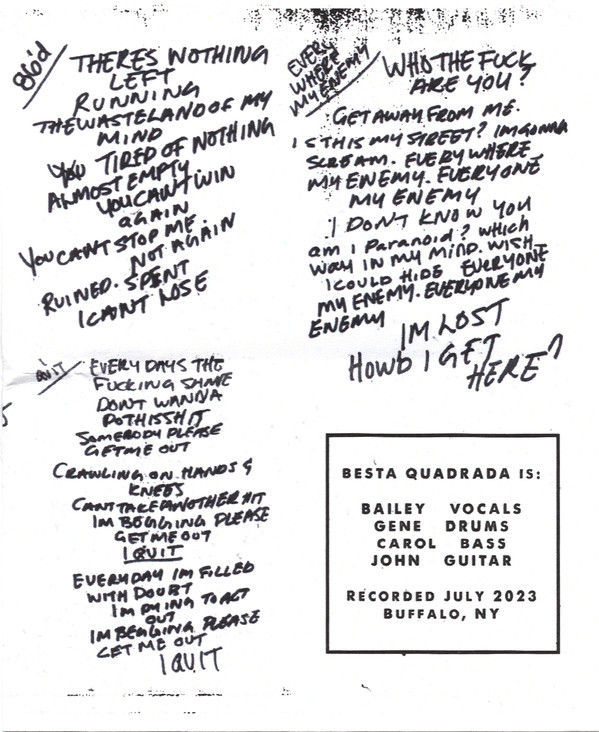 86'd
THERES NOTHING
LEFT
RUNNING
THE WASTELAND OF MY
MIND
YOU TIRED OF NOTHING
ALMOST EMPTY
YOU CANT WIN
AGAIN
YOU CANT STOP ME.
NOT AGAIN
RUINED. SPENT
I CANT LOSE
EVERY
WHERE
MY ENEMY
WHO THE FUCK
ARE YOU?
GET AWAY FROM ME.
IS THIS MY STREET? IM GONNA
SCREAM. EVERYWHERE
MY ENEMY. EVERYONE
MY ENEMY
I DONT KNOW YOU
am I Paranoid? which
way IN MY MIND. WISH
I COULD HIDE EVERYONE
MY ENEMY. EVERYONE MY
ENEMY
IM LOST
HOWD I GET
HERE?
QUIT
EVERYDAYS THE
FUCKING SAME
DONT WANNA
DO THIS SHIT
SOMEBODY PLEASE
GET ME OUT
CRAWLING ON HANDS &
KNEES
CANT TAKE ANOTHER HIT
IM BEGGING PLEASE
GET ME OUT
I QUIT
EVERYDAY IM FILLED
WITH DOUBT
IM DYING TO ACT
OUT
IM BEGGING PLEASE
GET ME OUT
I QUIT
BESTA QUADRADA IS:
BAILEY VOCALS
GENE DRUMS
CAROL BASS
JOHN GUITAR
RECORDED JULY 2023
BUFFALO, NY